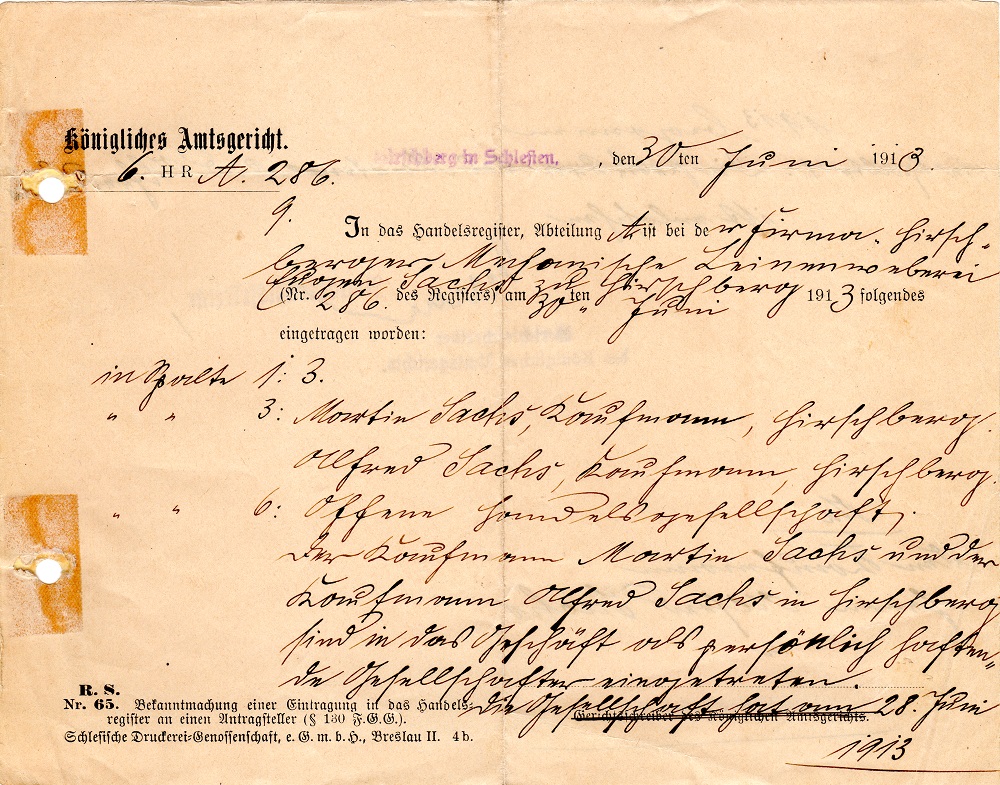 Königliches Amtsgericht.
Hirschberg in Schlesien, , den 30 ten Juni 1913.
6. H R A. 286.
9.
In das Handelsregister, Abteilung A ist bei der Firma „Hirsch-
berger Mechanische Leinenweberei
Eugen Sachs zu Hirschberg
(Nr. 286. des Registers) am 30 ten Juni 1913 folgendes
eingetragen worden:
in Spalte 1: 3.
" " 3: Martin Sachs, Kaufmann, Hirschberg.
Alfred Sachs, Kaufmann, Hirschberg.
" " 6: Offene Handelsgesellschaft,
Der Kaufmann Martin Sachs und der
Kaufmann Alfred Sachs in Hirschberg
sind in das Geschäft als persönlich haften-
de Gesellschafter eingetreten.
Die Gesellschaft hat am 28. Juni
1913
R. S.
Nr. 65. Bekanntmachung einer Eintragung in das Handels-
register an einen Antragsteller (§ 130 F.G.G.).
Gerichtsschreiber des Königlichen Amtsgerichts.
Schlesische Druckerei-Genossenschaft, e. G. m. b. H., Breslau II. 4 b.